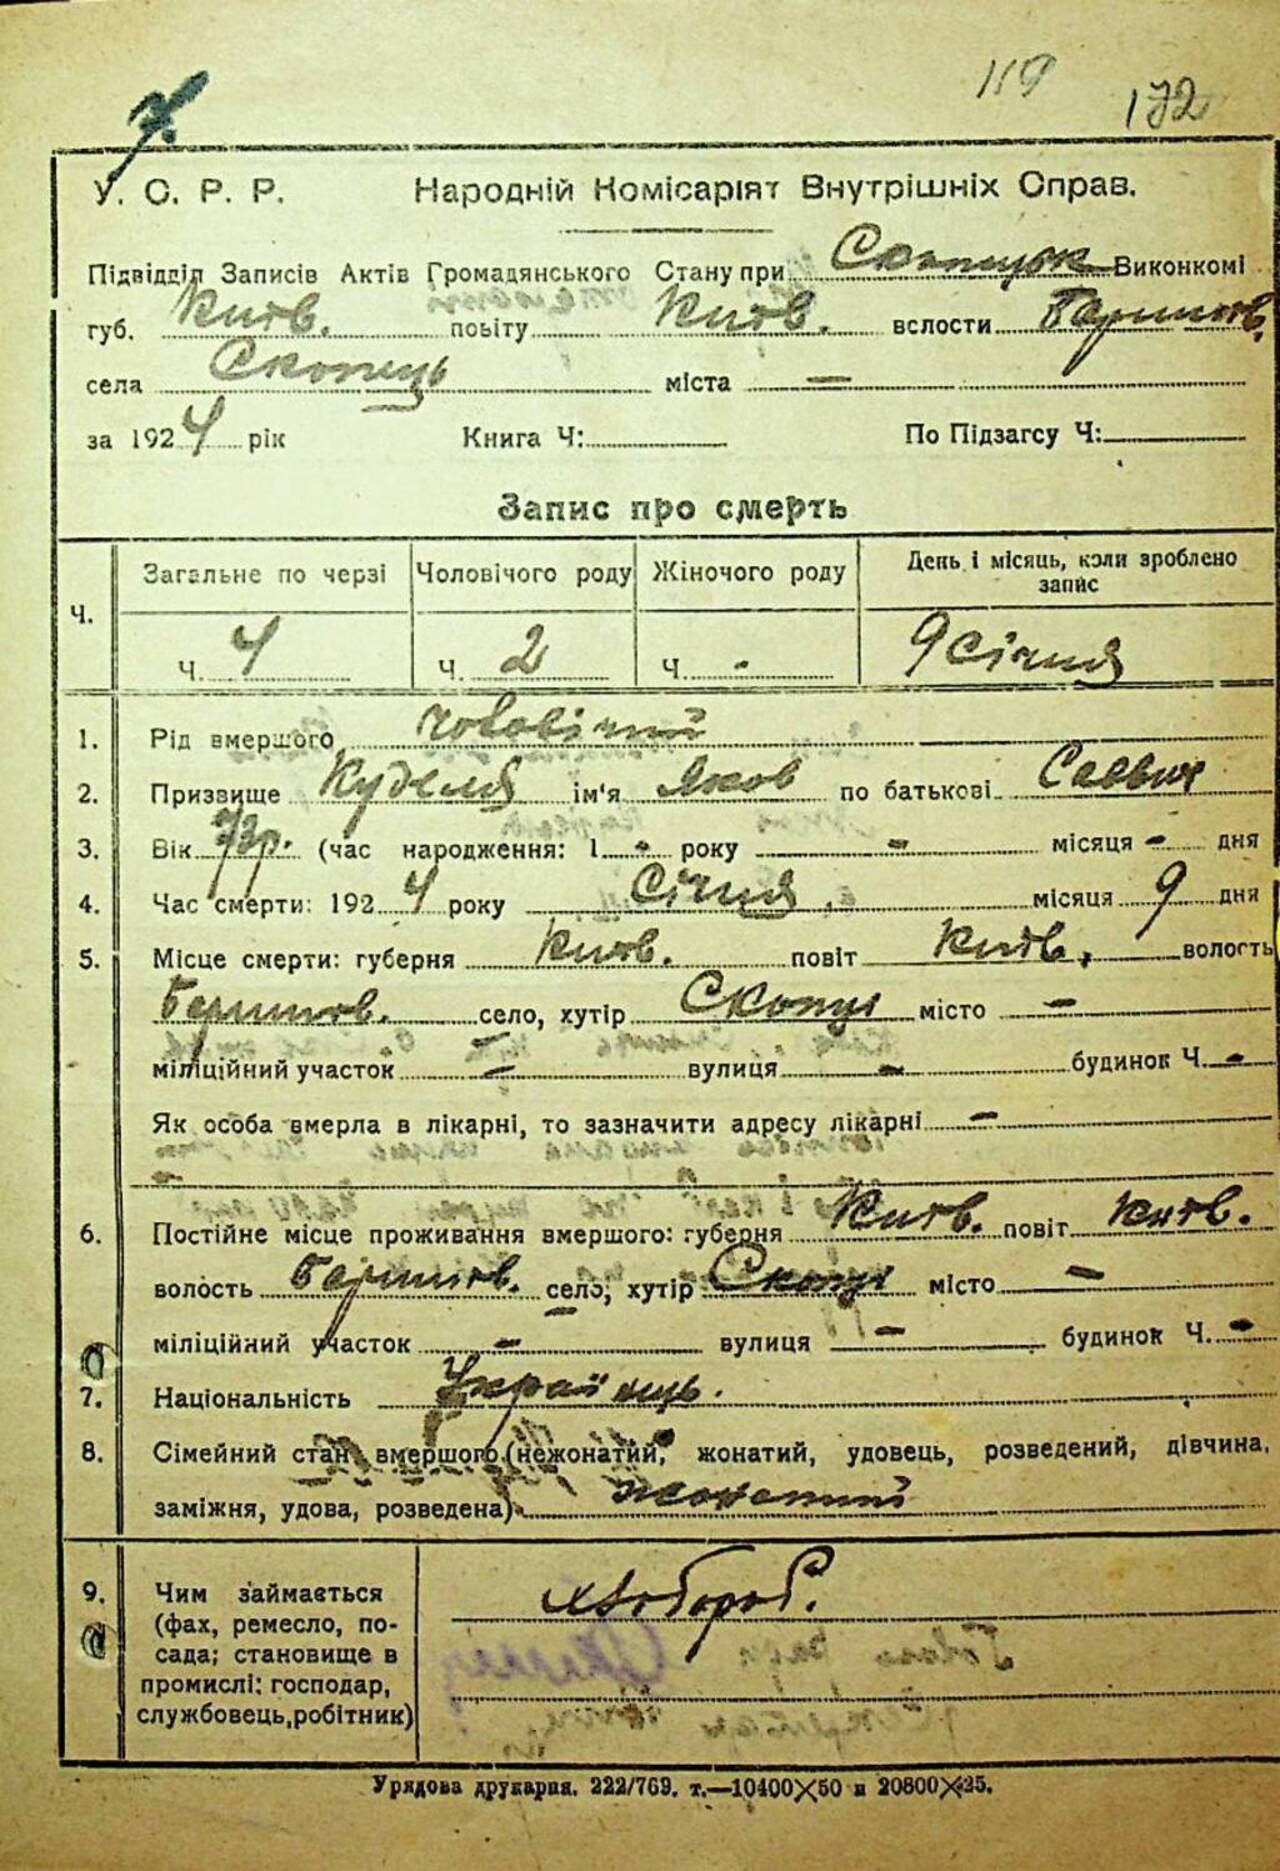 119
172
У. С. Р. Р. Народній Комісаріят Внутрішніх Справ.
Підвідділ Записів Актів Громадянського Стану при Скопцск Виконкомі
губ. Київ. повіту Київ. волости Баришів.
села Скопець міста —
за 1924 рік Книга Ч: По Підзагсу Ч:
Запис про смерть
Ч. Загальне по черзі Чоловічого роду Жіночого роду День і місяць, коли зроблено запис
Ч. 4 Ч. 2 Ч. - 9 Січня
1. Рід вмершого чоловічий
2. Призвище Куделя ім'я Яков по батькові Саввич
3. Вік 73р. (час народження: 1 - року - місяця - дня
4. Час смерти: 1924 року Січня місяця 9 дня
5. Місце смерти: губерня Київ. повіт Київ. волость
Баришів. село, хутір Скопці місто —
міліційний участок — вулиця — будинок Ч. -
Як особа вмерла в лікарні, то зазначити адресу лікарні —
-
6. Постійне місце проживання вмершого: губерня Київ. повіт Київ.
волость Баришів. село, хутір Скопці місто —
міліційний участок — вулиця — будинок Ч. -
7. Національність Українець.
8. Сімейний стан вмершого (нежонатий, жонатий, удовець, розведений, дівчина,
заміжня, удова, розведена) жонатий
9. Чим займається хлібороб.
(фах, ремесло, по-
сада; становище в
промислі: господар,
службовець, робітник)
Урядова друкарня. 222/769. т.—10400×50 и 20800×25.